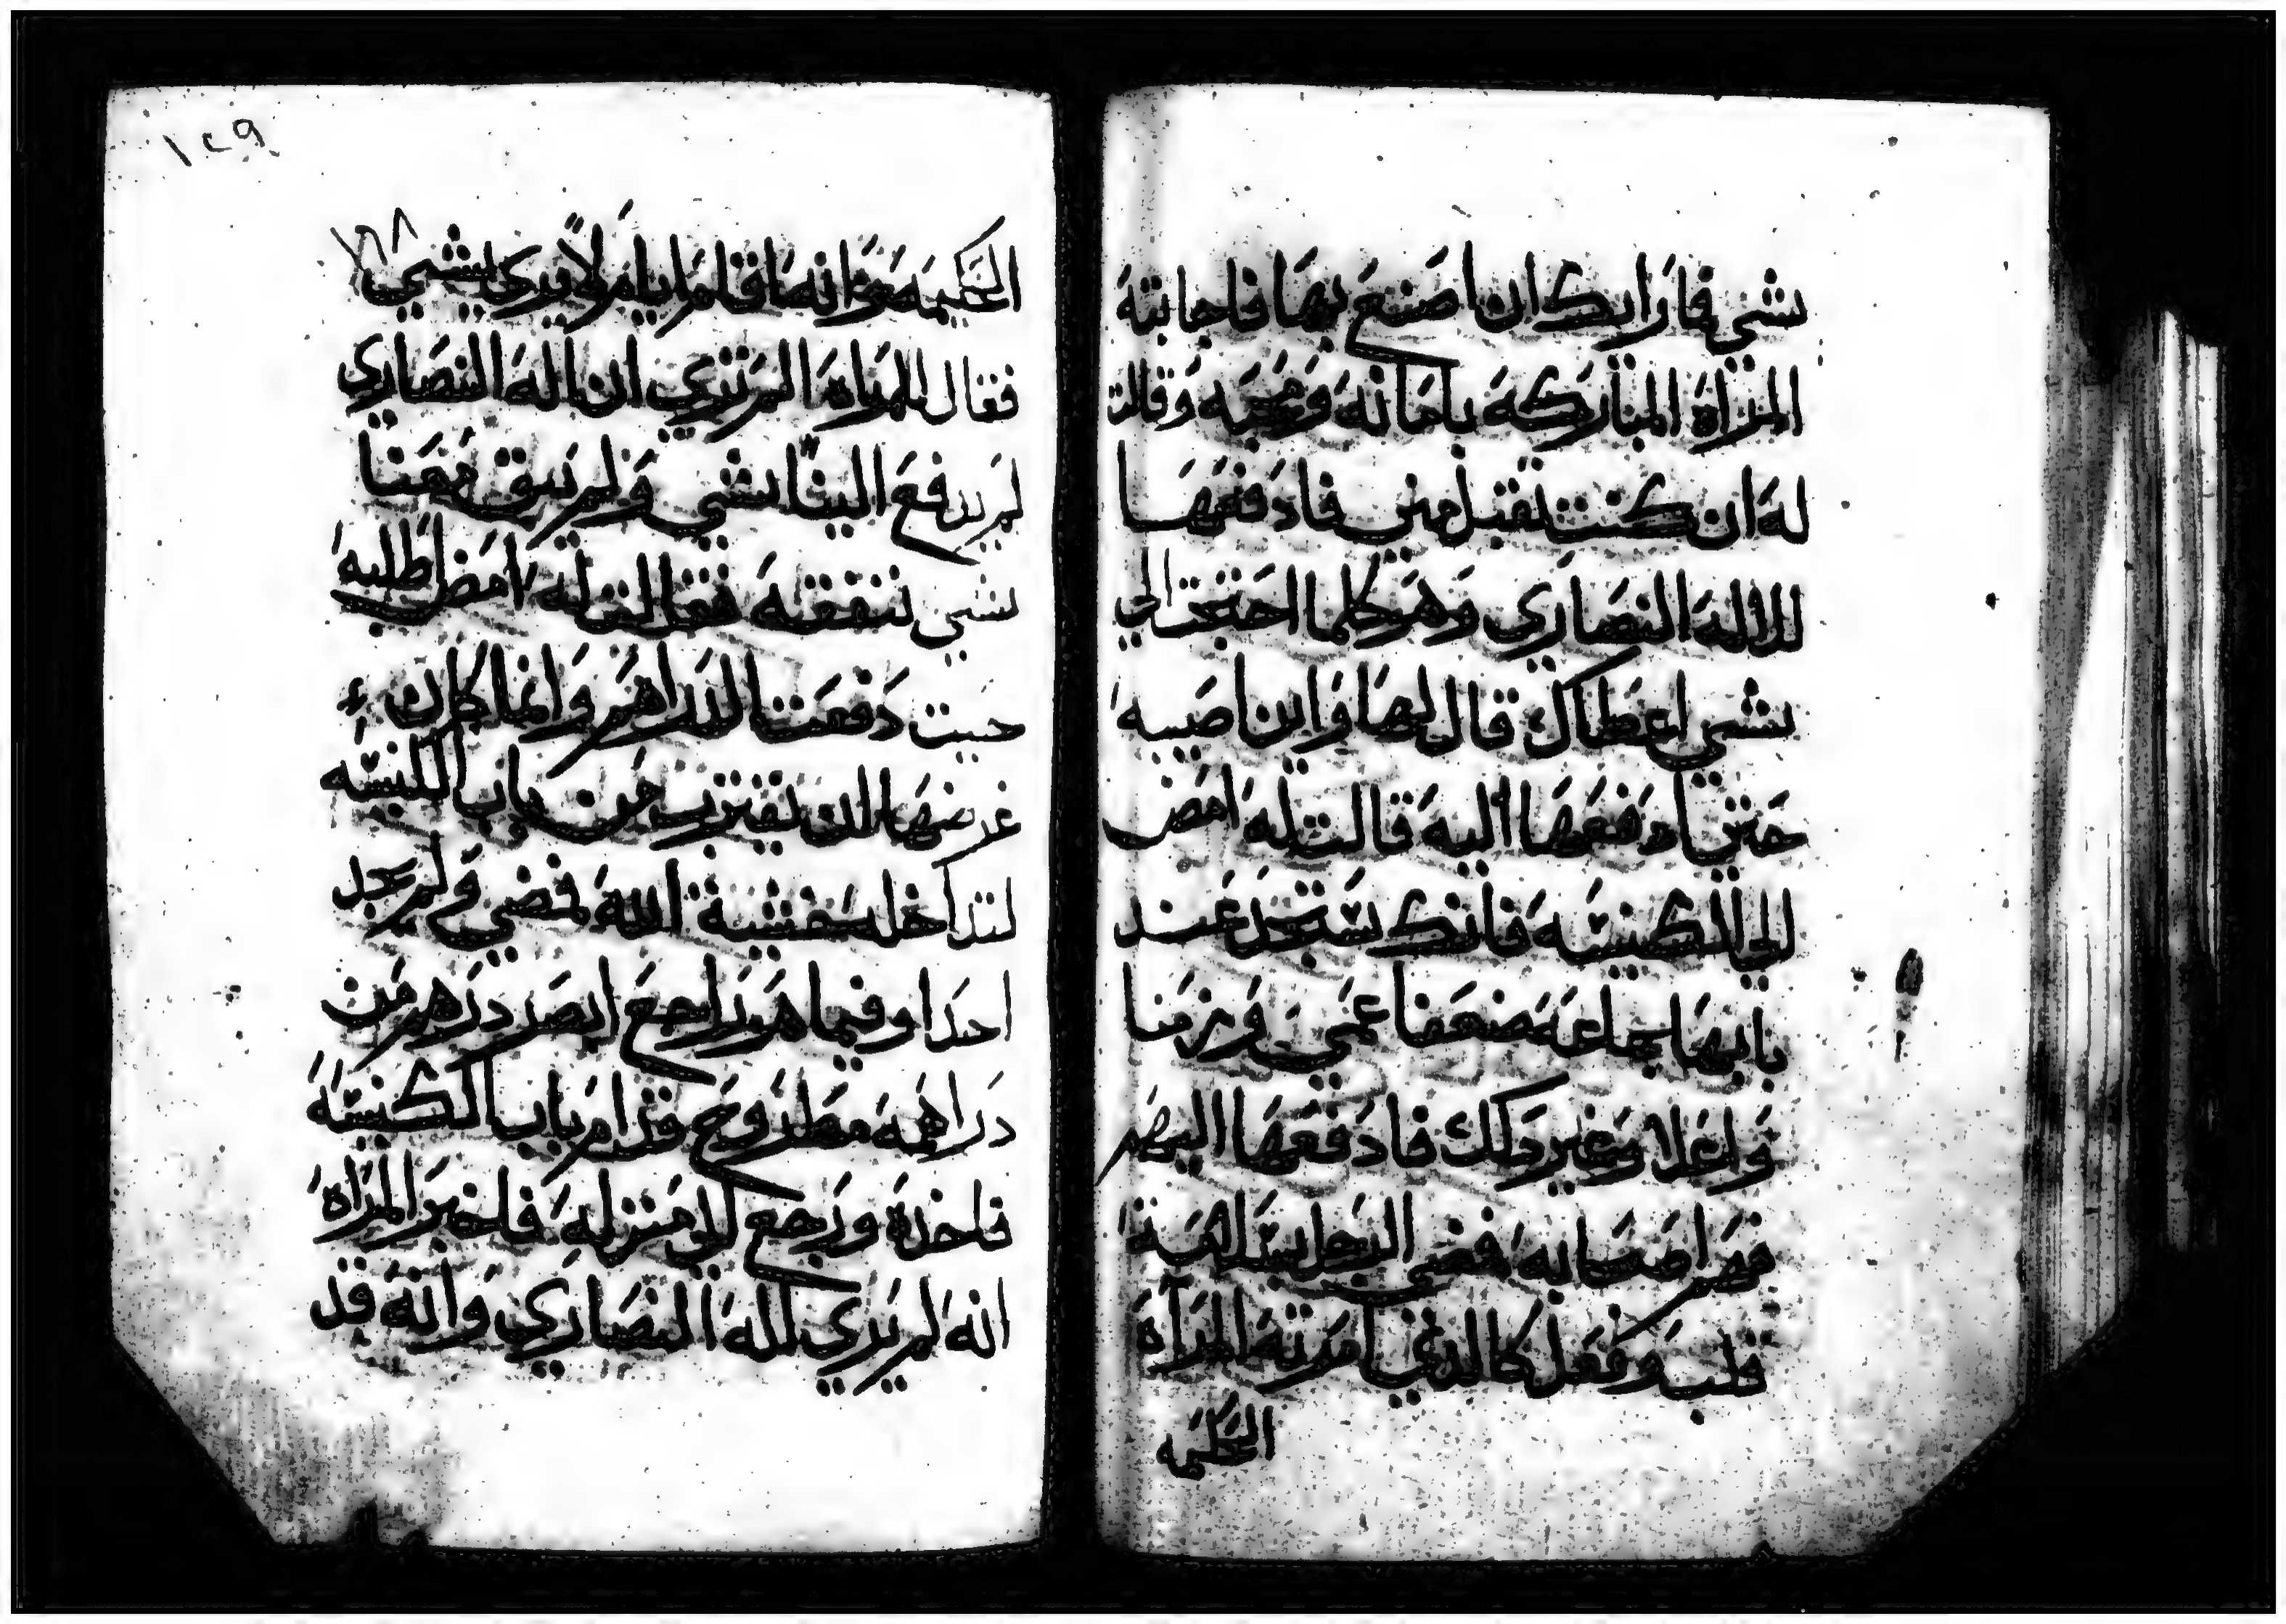 بشي فما رايك ان اصنع بها فاجابته
المراة المباركة بامانه ومحبه وقالت
له ان كنت تقبل مني فادفعها
للاله النصاري وهو كلما احتجت الي
بشي اعطاك قال لها واين اصيبه
حتي ادفعها اليه قالت له امض
الي الكنيسه فانك ستجد عند
بابها جماعه ضعفا عمي وزمنا
وغير ذلك فادفعها اليهم
فهم اصحابه فمضي الرجل بسلامة
قلب وفعل كالذي امرته المراة
الحكيمه
١٢٩
الحكيمه وانه اقام ايام لا يري بشي
فقال للمراه المر تري ان اله النصاري
لم يدفع الينا بشي ولم يبق معنا
شي ننفقه فقالت له امض اطلبه
حيت دفعت الدراهم وانما كان
غرضها ان يقترب من باب الكنيسه
لتداخله خشية الله فمضي ولم يجد
احدا وفيما هو راجع ابصر درهم من
دراهمه مطروح قدام باب الكنيسة
فاخذه ورجع الي منزله فاخبر المراة
انه لم يري اله النصاري وانه قد